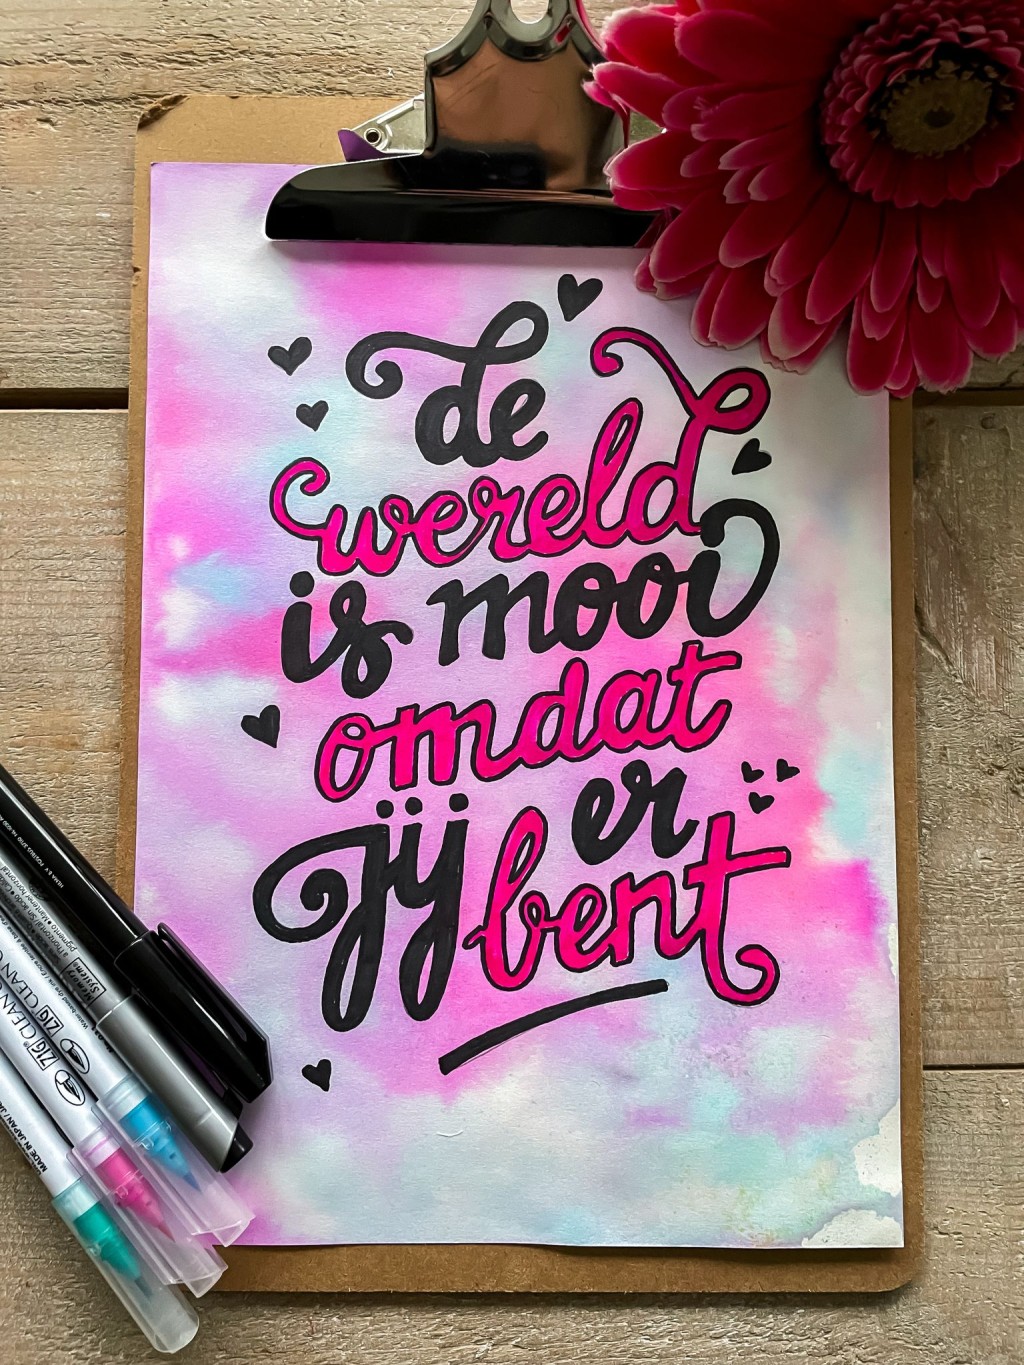 de
wereld
is mooi
omdat
jij er
bent
ZIG CLEAN
ZIG CLEAN
Memory
System
MADE IN JAPAN